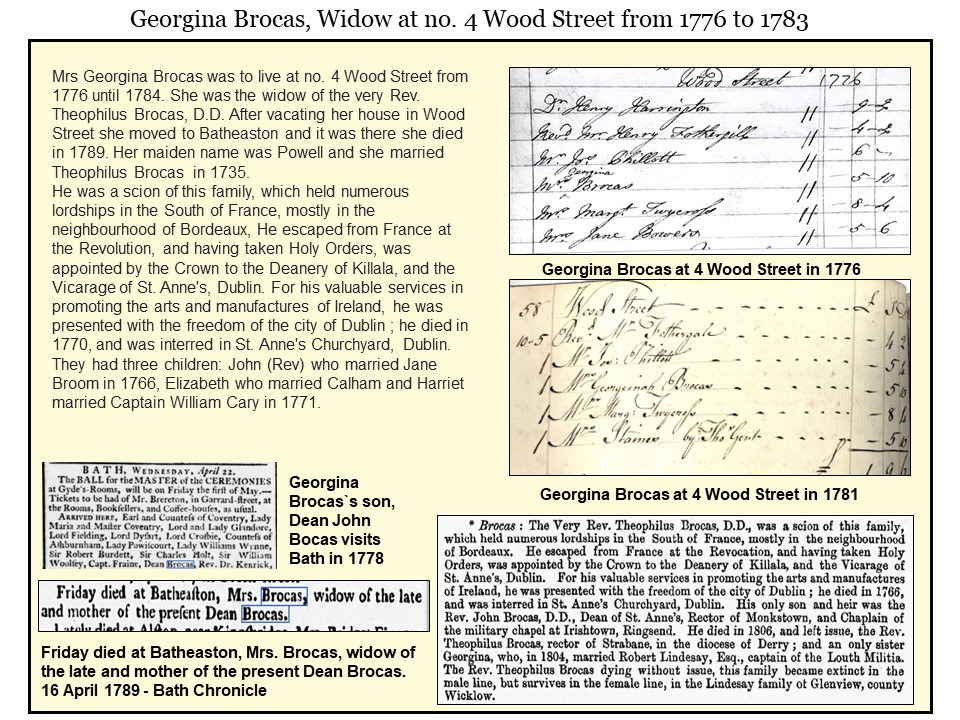 Georgina Brocas, Widow at no. 4 Wood Street from 1776 to 1783
Mrs Georgina Brocas was to live at no. 4 Wood Street from
1776 until 1784. She was the widow of the very Rev.
Theophilus Brocas, D.D. After vacating her house in Wood
Street she moved to Batheaston and it was there she died
in 1789. Her maiden name was Powell and she married
Theophilus Brocas in 1735.
He was a scion of this family, which held numerous
lordships in the South of France, mostly in the
neighbourhood of Bordeaux, He escaped from France at
the Revolution, and having taken Holy Orders, was
appointed by the Crown to the Deanery of Killala, and the
Vicarage of St. Anne's, Dublin. For his valuable services in
promoting the arts and manufactures of Ireland, he was
presented with the freedom of the city of Dublin ; he died in
1770, and was interred in St. Anne's Churchyard, Dublin.
They had three children: John (Rev) who married Jane
Broom in 1766, Elizabeth who married Calham and Harriet
married Captain William Cary in 1771.
Wood Street 1776
Dr. Henry Harrington 9-2
Revd. Mr. Henry Fothergill 4-2
Mr. Jos Chillott 6
Georgina
Mrs. Brocas 5-10
Mrs. Margt. Twycross 8-4
Mrs Jane Bowers 5-6
Georgina Brocas at 4 Wood Street in 1776
58 Wood Street £
10-5 Revd. Mr. Fothergale 4 2
1 Mr. Jos: Chillott 5
1 Mrs Georgeinah Brocas 5 10
1 Mrs Marg: Twycross 8 4
1 Mrs Staines by Thos Gent 5 10
1 9 6
Georgina Brocas at 4 Wood Street in 1781
BATH, WEDNESDAY, April 22.
The BALL for the MASTER of the CEREMONIES
at Gyde's-Rooms, will be on Friday the first of May.—
Tickets to be had of Mr. Brereton, in Garrard-street, at
the Rooms, Booksellers, and Coffee-houses, as usual.
ARRIVED HERE, Earl and Countess of Coventry, Lady
Maria and Master Coventry, Lord and Lady Glandore,
Lord Fielding, Lord Dysart, Lord Crosbie, Countess of
Ashburnham, Lady Powiscourt, Lady Williams Wynne,
Sir Robert Burdett, Sir Charles Holt, Sir William
Woolsey, Capt. Fraine, Dean Brocas, Rev. Dr. Kenrick,
Georgina
Brocas`s son,
Dean John
Bocas visits
Bath in 1778
Friday died at Batheaston, Mrs. Brocas, widow of the late
and mother of the present Dean Brocas.
Friday died at Batheaston, Mrs. Brocas, widow of
the late and mother of the present Dean Brocas.
16 April 1789 - Bath Chronicle
* Brocas : The Very Rev. Theophilus Brocas, D.D., was a scion of this family,
which held numerous lordships in the South of France, mostly in the neighbourhood
of Bordeaux. He escaped from France at the Revocation, and having taken Holy
Orders, was appointed by the Crown to the Deanery of Killala, and the Vicarage of
St. Anne's, Dublin. For his valuable services in promoting the arts and manufactures
of Ireland, he was presented with the freedom of the city of Dublin ; he died in 1766,
and was interred in St. Anne's Churchyard, Dublin. His only son and heir was the
Rev. John Brocas, D.D., Dean of St. Anne's, Rector of Monkstown, and Chaplain of
the military chapel at Irishtown, Ringsend. He died in 1806, and left issue, the Rev.
Theophilus Brocas, rector of Strabane, in the diocese of Derry ; and an only sister
Georgina, who, in 1804, married Robert Lindesay, Esq., captain of the Louth Militia.
The Rev. Theophilus Brocas dying without issue, this family became extinct in the
male line, but survives in the female line, in the Lindesay family of Glenview, county
Wicklow.